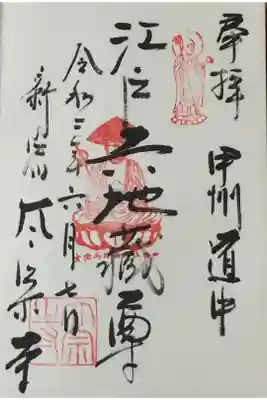 奉拝
甲州道中
江戸六地蔵尊
令和二年六月七日
新宿太宗寺